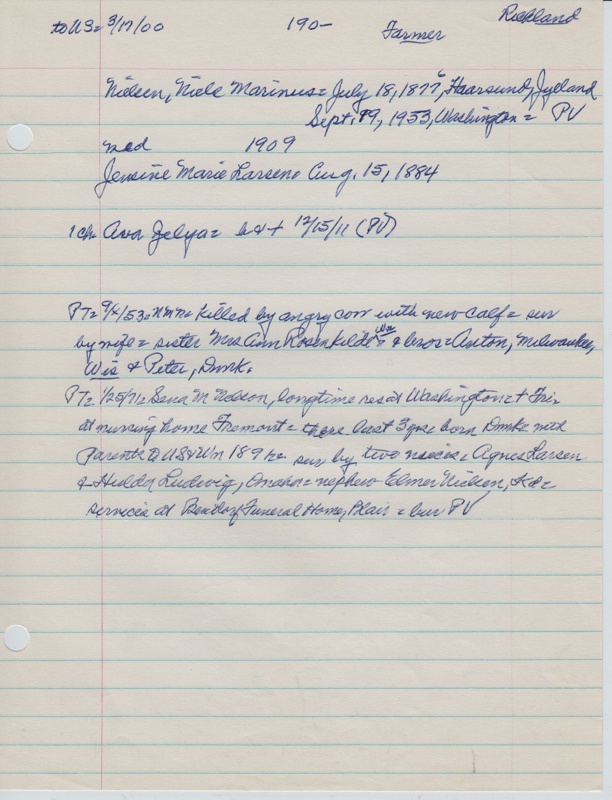 to US= 3/17/00 190— Farmer Richland
Nielsen, Niels Marinus= July 18, 1877, Haarsund, Jylland
Sept. 19, 1953, Washington= PV
med 1909
Jensine Marie Larsen= Aug. 15, 1884
1 ch= Ava Jelya= b&+ 12/15/11 (PV)
PT= 9/ /53= killed by angry cow with new calf= sur
by wife= sister Mrs Ann Rosenkilde Wn & bros= Anton, Milwaukee,
Wis & Peter, Dmk.
PT= 1/25/71= Sena M Nelson, longtime res at Washington= + Fri
at nursing home Fremont= there last 3 yrs= born Dmk= med
Parents to US&Wn 189 = sur by two nieces= Agnes Larsen
& Hulda Ludwig, Omaha= nephew Elmer Nielsen,
services at Funeral Home, Blair= bur PV